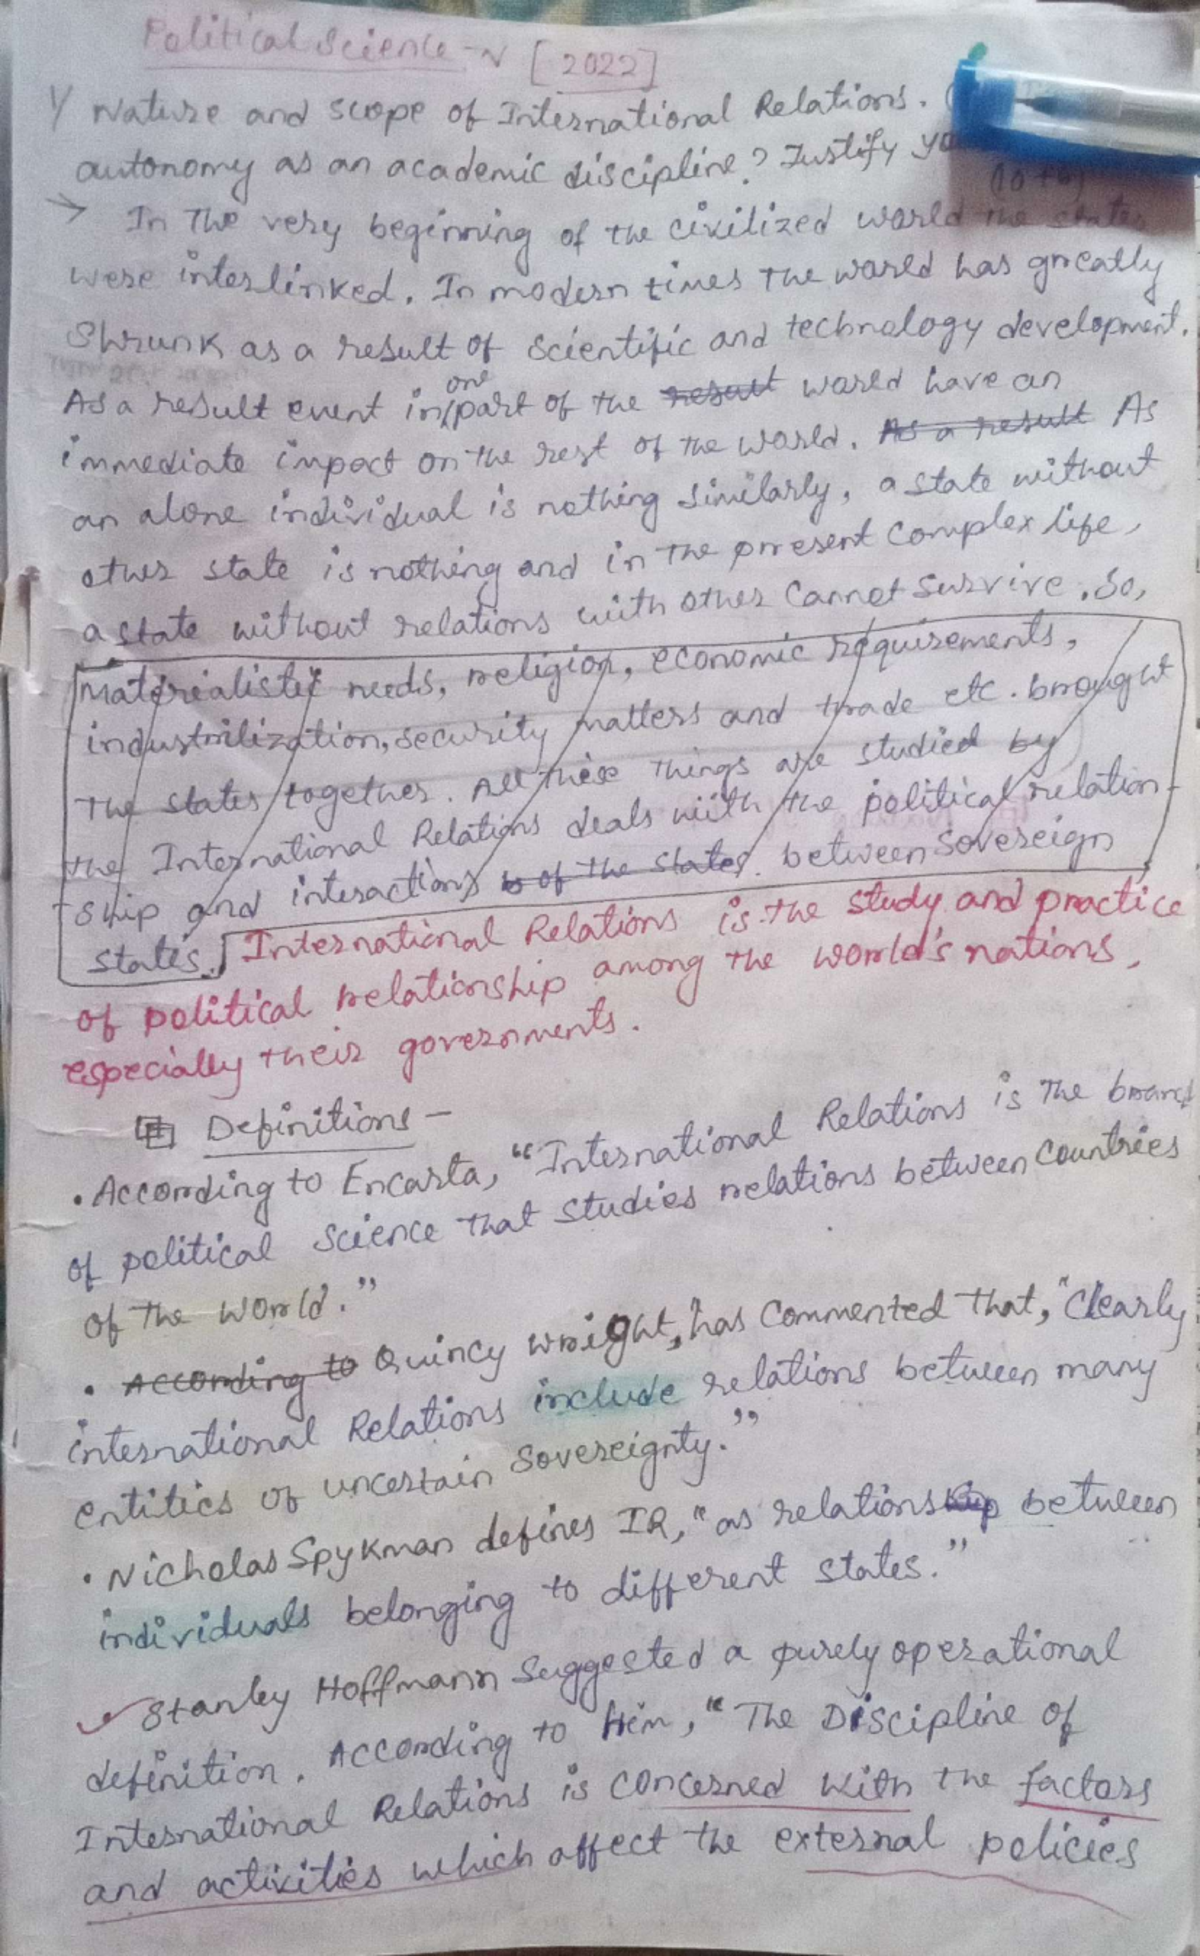 Political Science - V [2022]
1/ Nature and scope of International Relations.
autonomy as an academic discipline? Justify yo
(10+6)
→ In The very beginning of the civilized world the states
were interlinked. In modern times The world has greatly
Shrunk as a result of scientific and technology development.
As a result event in one part of the result world have an
immediate impact on the rest of the world. As a result As
an alone individual is nothing similarly, a state without
other state is nothing and in the present complex life,
a state without relations with other Cannot survive. So,
Materialistic needs, religion, economic requirements,
industrilization, security matters and trade etc. brought
The states together. All these things are studied by
the International Relations deals with the political relation-
ship and interactions is of the states. between sovereign
states. International Relations is the study and practice
of political relationship among the world's nations,
especially their governments.
Definitions -
• According to Encarta, "International Relations is The branch
of political science that studies relations between countries
of the world."
• According to Quincy wright, has commented that, "Clearly
international Relations include relations between many
entities of uncertain sovereignty."
• Nicholas Spykman defines IR, "as relationship between
individuals belonging to different states."
Stanley Hoffmann suggested a purely operational
definition. According to Him, "The Discipline of
International Relations is concerned with the factors
and activities which affect the external policies